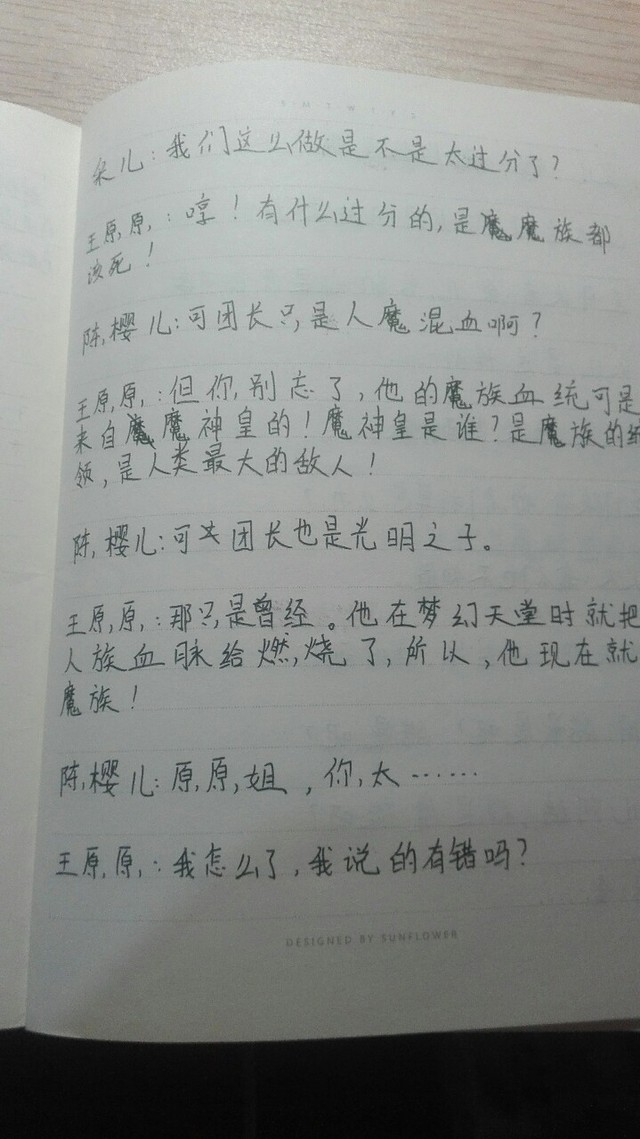 S M T W T F S
朵儿：我们这么做是不是太过分了？
王原原：哼！有什么过分的，是魔魔族都
该死！
陈樱儿：可团长只是人魔混血啊？
王原原：但你别忘了，他的魔族血统可是
来自魔魔神皇的！魔神皇是谁？是魔族的统
领，是人类最大的敌人！
陈樱儿：可团长也是光明之子。
王原原：那只是曾经。他在梦幻天堂时就把
人族血脉给燃烧了，所以，他现在就
魔族！
陈樱儿：原原姐，你太……
王原原：我怎么了，我说的有错吗？
DESIGNED BY SUNFLOWER